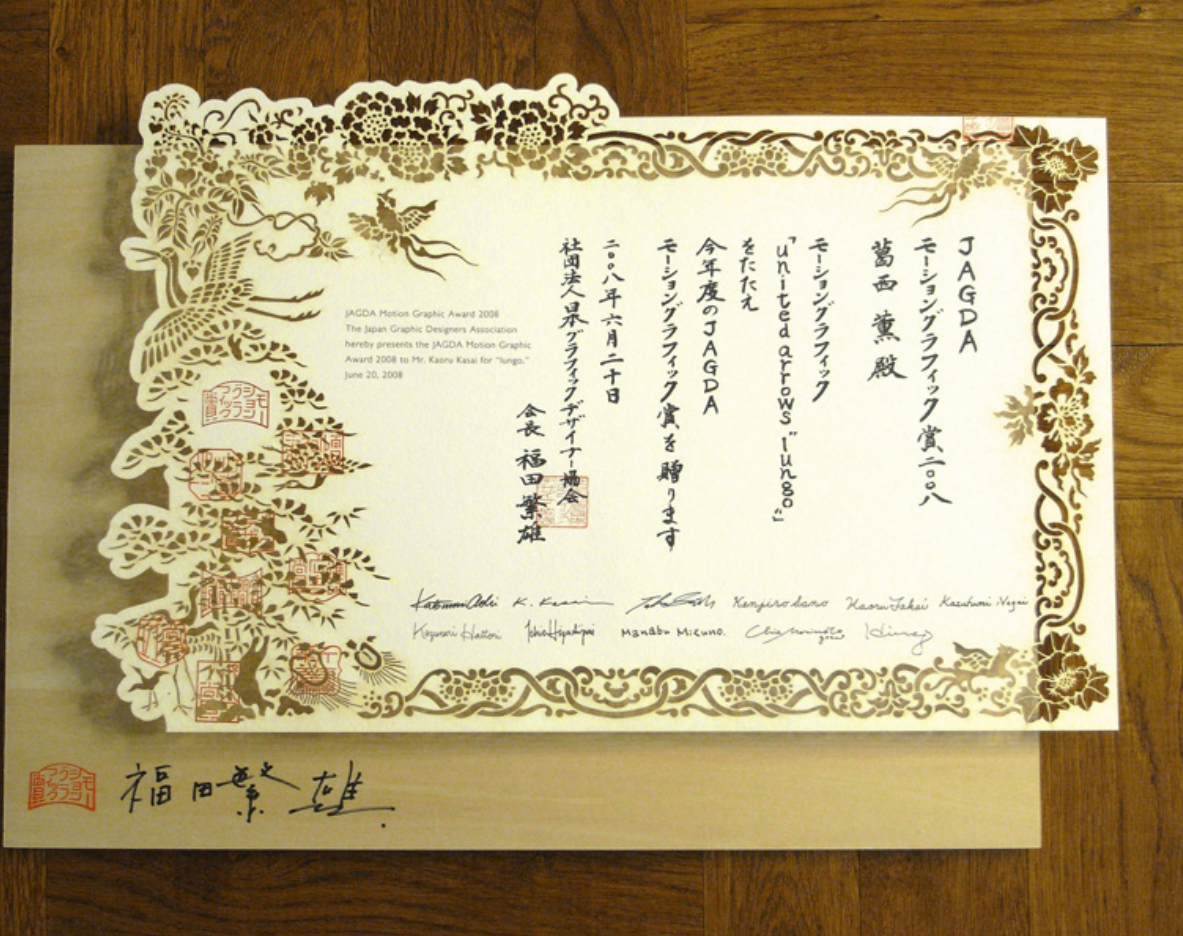 JAGDA
モーショングラフィック賞二〇〇八
葛西 薫 殿
モーショングラフィック
「united arrows "lungo"」
をたたえ
今年度のJAGDA
モーショングラフィック賞を贈ります
二〇〇八年六月二十日
社団法人日本グラフィックデザイナー協会
会長 福田繁雄
JAGDA Motion Graphic Award 2008
The Japan Graphic Designers Association
hereby presents the JAGDA Motion Graphic
Award 2008 to Mr. Kaoru Kasai for "lungo."
June 20, 2008
モーショングラフィック賞
K. Kasai Kenjiro Sano Kaoru Takai Kazufumi Nagai
Kazunari Hattori Manabu Mizuno.
モーショングラフィック賞
福田繁雄